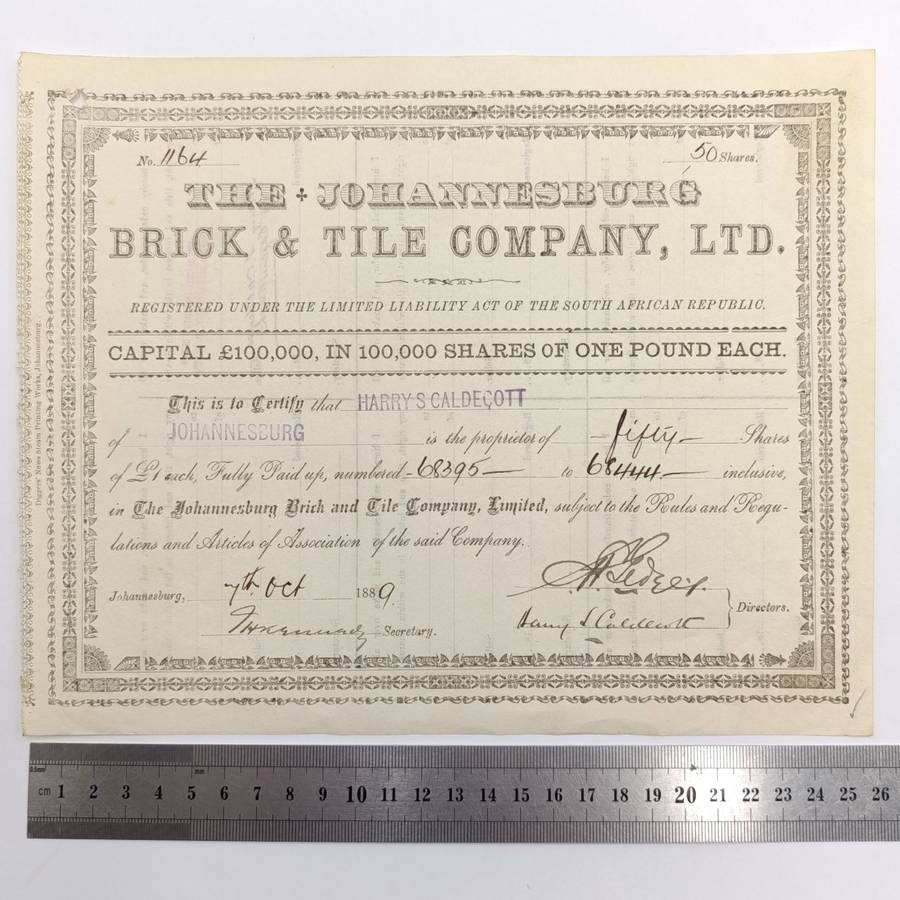 No. 1164 50 Shares.
THE JOHANNESBURG
BRICK & TILE COMPANY, LTD.
REGISTERED UNDER THE LIMITED LIABILITY ACT OF THE SOUTH AFRICAN REPUBLIC.
CAPITAL £100,000, IN 100,000 SHARES OF ONE POUND EACH.
This is to Certify that HARRY S CALDECOTT
of JOHANNESBURG is the proprietor of - fifty - Shares
of £1 each, Fully Paid up, numbered - 68395 - to 68444 - inclusive,
in The Johannesburg Brick and Tile Company, Limited, subject to the Rules and Regu-
lations and Articles of Association of the said Company.
Johannesburg, 7th Oct 1889.
Harry S Caldecott Directors.
Secretary.
Diggers' News Steam Printing Works, Johannesburg.
0.5mm mm
cm 1 2 3 4 5 6 7 8 9 10 11 12 13 14 15 16 17 18 19 20 21 22 23 24 25 26